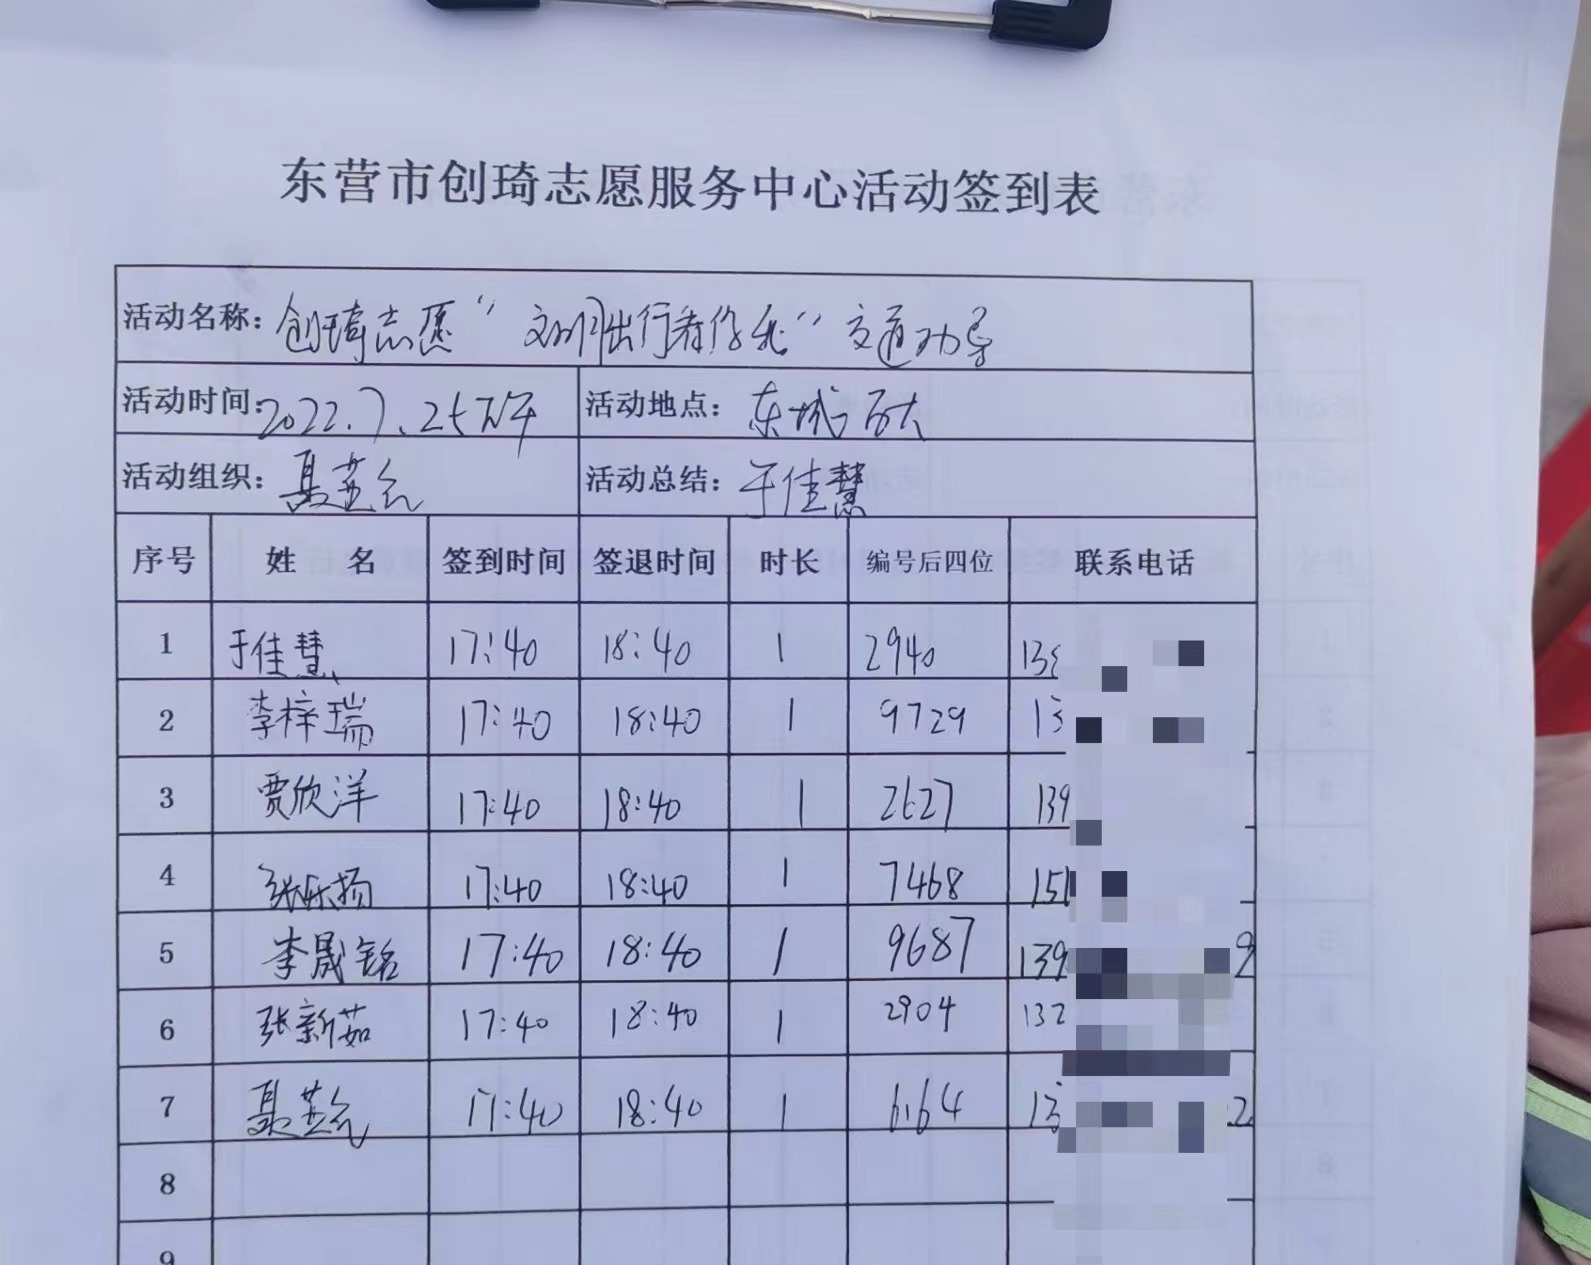 东营市创琦志愿服务中心活动签到表
活动名称：创琦志愿“文明出行看你我”交通劝导
活动时间：2022.7.25下午 活动地点：东城百大
活动组织： 活动总结：于佳慧
序号 姓 名 签到时间 签退时间 时长 编号后四位 联系电话
1 于佳慧 17:40 18:40 1 2940
2 李梓瑞 17:40 18:40 1 9729 13
3 贾欣洋 17:40 18:40 1 2627 139
4 张乐扬 17:40 18:40 1 7468 151
5 李晟铭 17:40 18:40 1 9687 139 9
6 张新茹 17:40 18:40 1 2904 132
7 17:40 18:40 1 6164 13 2
8
9